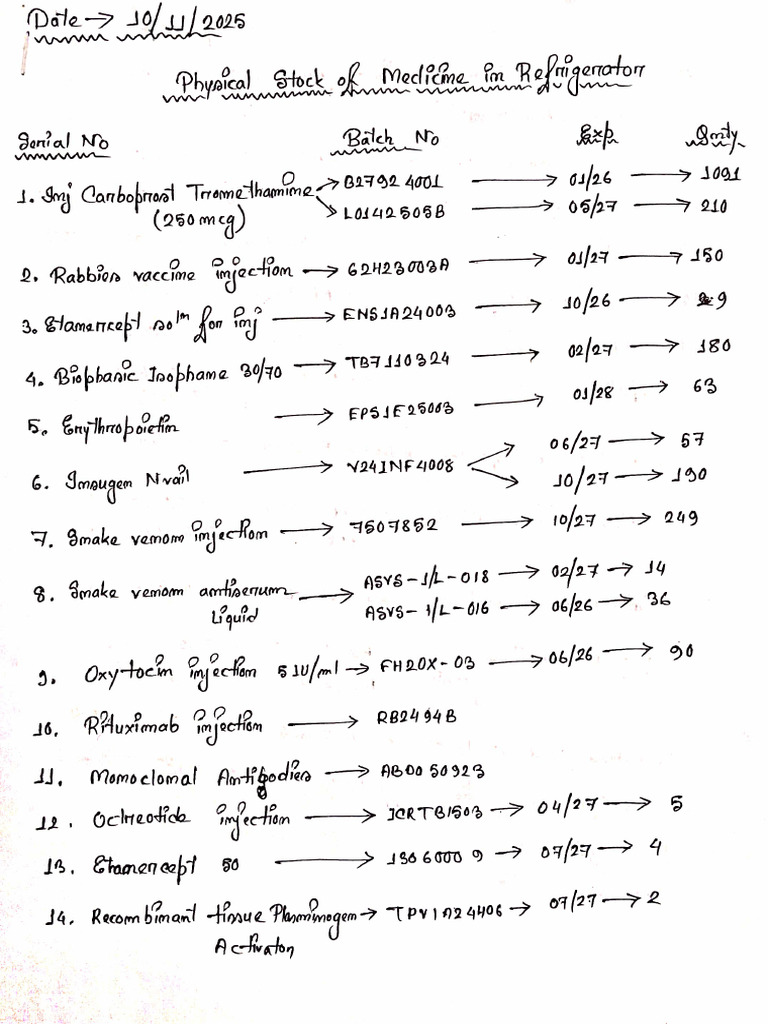 Date → 10/11/2025
Physical Stock of Medicine in Refrigerator
Serial No Batch No Exp. Qnty.
1. Inj Carboprost Tromethamine → B2792 4001 → 01/26 → 1091
(250 mcg) → L0142505B → 05/27 → 210
2. Rabbies vaccine injection → 62423003A → 01/27 → 150
3. Etanercept soln for inj → ENS1A24003 → 10/26 → 9
4. Biophanic Isophame 30/70 → TB7110324 → 02/27 → 180
5. Erythropoietin → EPS1E25003 → 01/28 → 63
6. Insugen Nvail → V24INF4008 → 06/27 → 57
→ 10/27 → 190
7. Snake venom injection → 7507852 → 10/27 → 249
8. Snake venom antiserum → ASVS-1/L-018 → 02/27 → 14
Liquid ASVS-1/L-016 → 06/26 → 36
9. Oxytocin injection 5 IU/ml → FH20X-03 → 06/26 → 90
10. Rituximab injection → RB2494B
11. Monoclonal Antibodies → ABD050923
12. Octreotide injection → ICRTB1503 → 04/27 → 5
13. Etanercept 50 → 1306000 9 → 07/27 → 4
14. Recombinant tissue Plasminogen → TPV1A24406 → 07/27 → 2
Activator